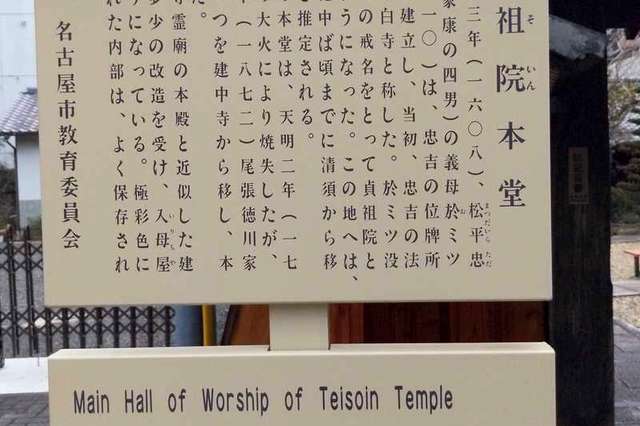 祖院本堂
三年(一六〇八)、松平忠
家康の四男)の義母於ミツ
一〇)は、忠吉の位牌所
建立し、当初、忠吉の法
白寺と称した。於ミツ没
の戒名をとって貞祖院と
うになった。この地へは、
中ば頃までに清須から移
と推定される。
本堂は、天明二年(一七
大火により焼失したが、
年(一八七二)尾張徳川家
つを建中寺から移し、本
た。
霊廟の本殿と近似した建
多少の改造を受け、入母屋
になっている。極彩色に
れた内部は、よく保存され
名古屋市教育委員会
Main Hall of Worship of Teisoin Temple